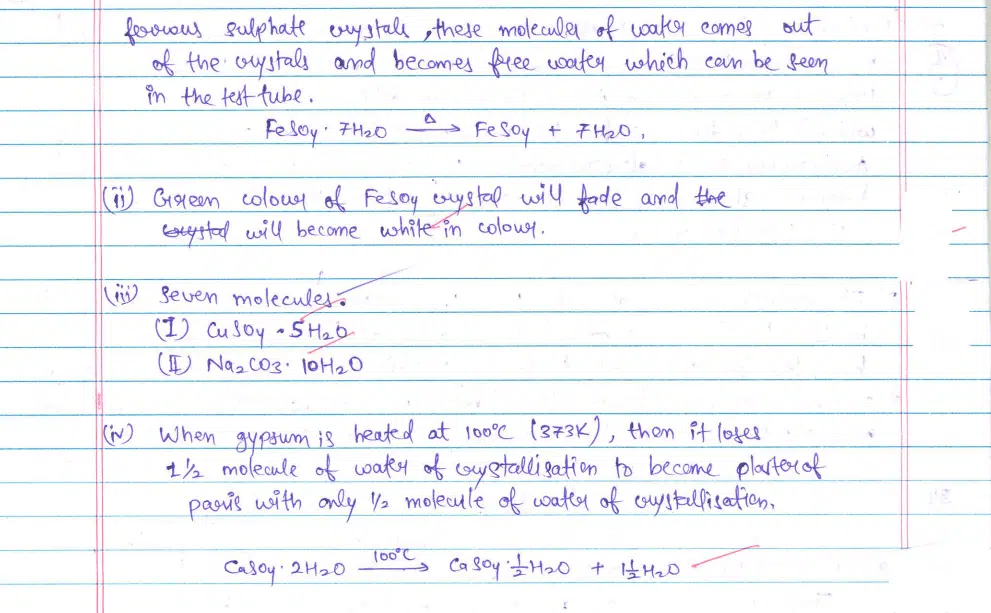 ferrous sulphate crystals, these molecules of water comes out
of the crystals and becomes free water which can be seen
in the test tube.
FeSO4 · 7H2O —Δ→ FeSO4 + 7H2O.
(ii) Green colour of FeSO4 crystal will fade and the
crystal will become white in colour.
(iii) Seven molecules.
(I) CuSO4 · 5H2O
(II) Na2CO3 · 10H2O
(iv) When gypsum is heated at 100°C (373K), then it loses
1 1/2 molecule of water of crystallisation to become plaster of
paris with only 1/2 molecule of water of crystallisation.
CaSO4 · 2H2O —100°C→ CaSO4 · 1/2 H2O + 1 1/2 H2O